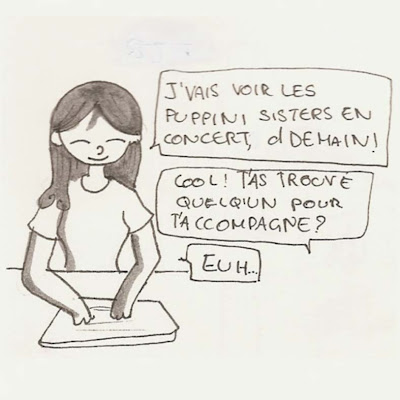 J'VAIS VOIR LES
PUPPINI SISTERS EN
CONCERT, DEMAIN!
COOL! T'AS TROUVÉ
QUELQ'UN POUR
T'ACCOMPAGNE?
EUH...